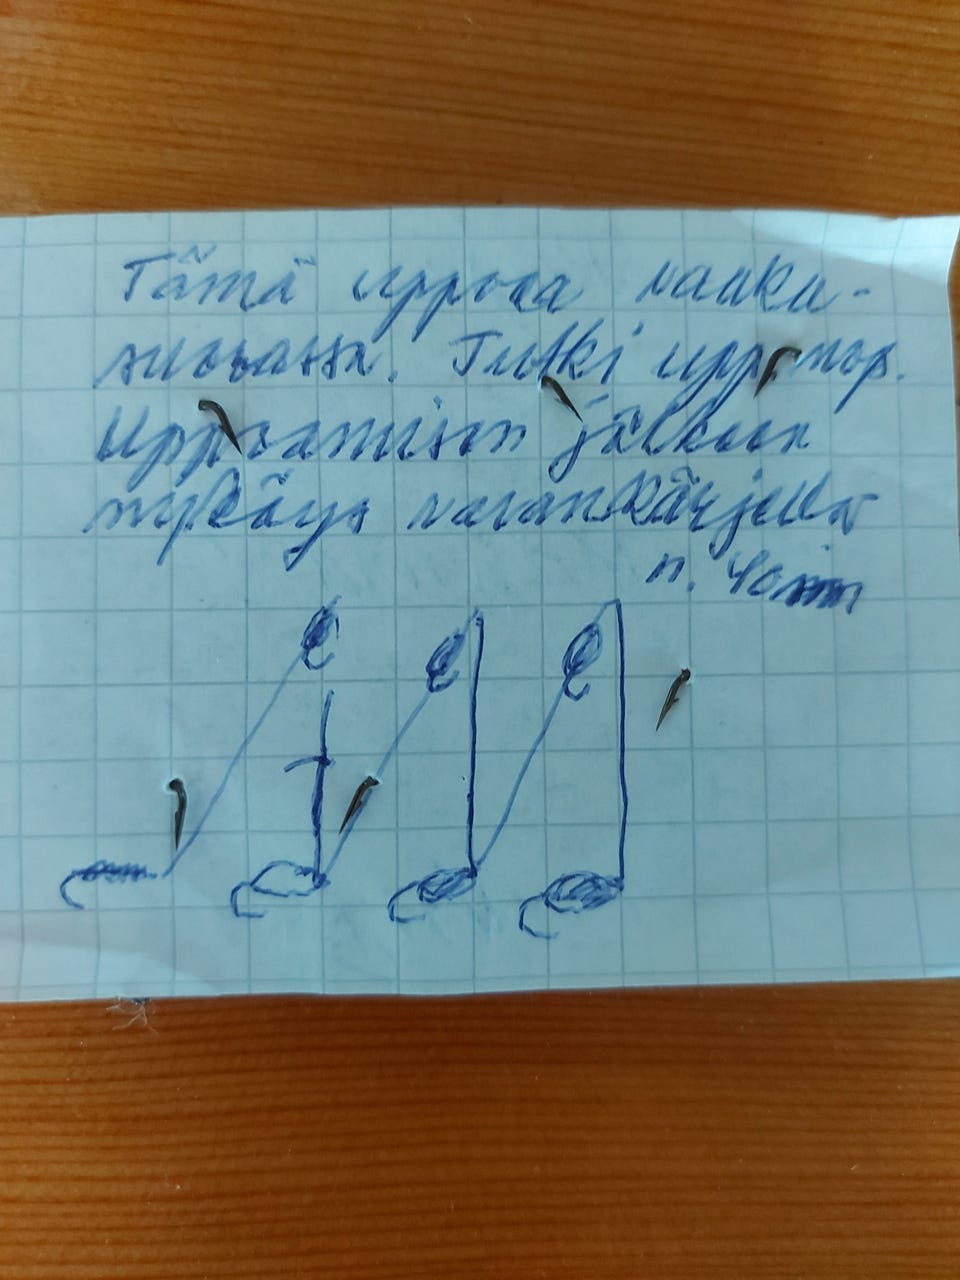 Tämä uppoaa vaaka-
suorassa. Tutki uppnop.
Uppoamisen jälkeen
nykäys vavankärjellä
n. 40 mm